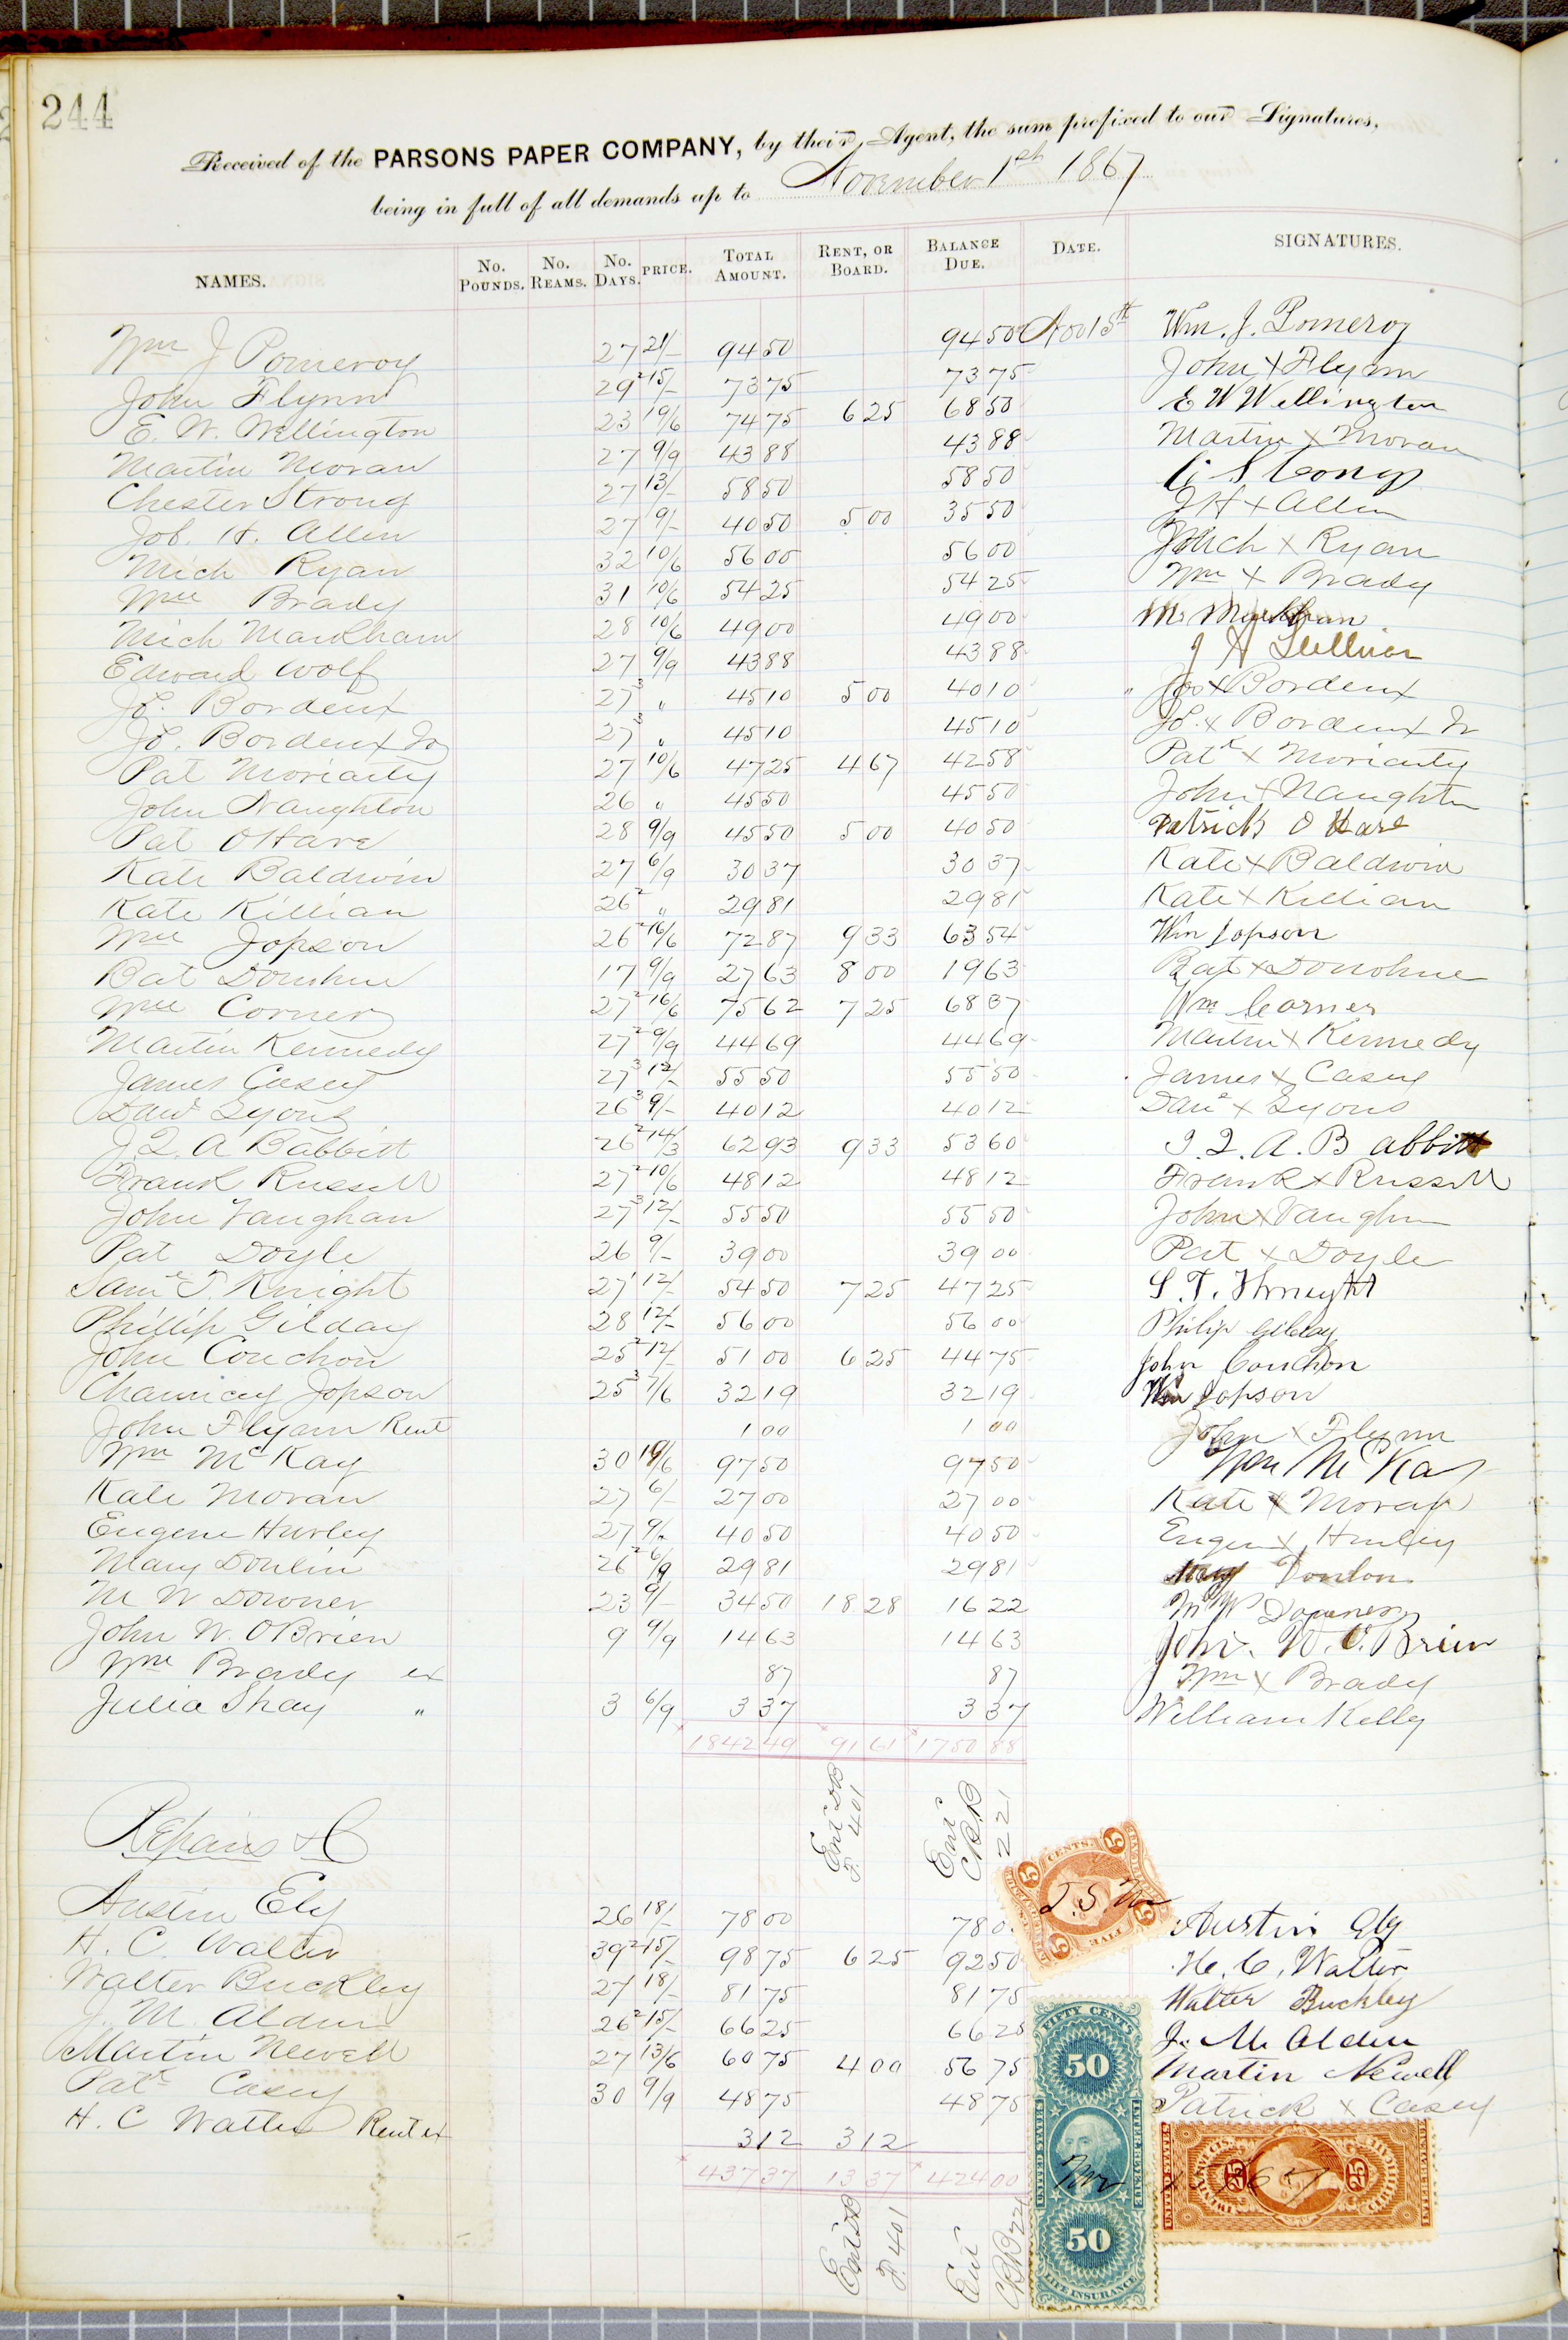 244
Received of the PARSONS PAPER COMPANY, by their Agent, the sum prefixed to our Signatures,
being in full of all demands up to November 1st 1867
NAMES. No. Pounds. No. Reams. No. Days. PRICE. Total Amount. Rent, or Board. Balance Due. Date. SIGNATURES.
Wm J Pomeroy 27 21/- 94 50 94 50 Nov 15th Wm. J. Pomeroy
John Flynn 29² 15/- 73 75 73 75 John X Flynn
E. W. Wellington 23 19/6 74 75 6 25 68 50 E W Wellington
Martin Moran 27 9/9 43 88 43 88 Martin X Moran
Chester Strong 27 13/- 58 50 58 50 C S tong
Job. H. Allen 27 9/- 40 50 5 00 35 50 J H X Allen
Mich Ryan 32 10/6 56 00 56 00 Mich X Ryan
Wm Brady 31 10/6 54 25 54 25 Wm X Brady
Mich Markham 28 10/6 49 00 49 00 M. Markham
Edward Wolf 27 9/9 43 88 43 88 J H Sullivan
Jo. Bordeux 27³ " 45 10 5 00 40 10 " Jos X Bordeux
Jo. Bordeux Jr 27³ " 45 10 45 10 Jo. X Bordeux Jr
Pat Moriarty 27 10/6 47 25 4 67 42 58 Patk X Moriarty
John Naughton 26 " 45 50 45 50 John X Naughton
Pat OHare 28 9/9 45 50 5 00 40 50 Patrick O Hare
Kate Baldwin 27 6/9 30 37 30 37 Kate X Baldwin
Kate Killian 26² " 29 81 29 81 Kate X Killian
Wm Jopson 26² 16/6 72 87 9 33 63 54 Wm Jopson
Bat Donohue 17 9/9 27 63 8 00 19 63 Bat X Donohue
Wm Corner 27² 16/6 75 62 7 25 68 37 Wm Corner
Martin Kennedy 27² 9/9 44 69 44 69 Martin X Kennedy
James Casey 27³ 12/- 55 50 55 50 James X Casey
Danl Lyons 26³ 9/- 40 12 40 12 Danl X Lyons
J. Q. A Babbitt 26² 14/3 62 93 9 33 53 60 J. Q. A. B abbitt
Frank Russell 27² 10/6 48 12 48 12 Frank X Russell
John Vaughan 27³ 12/- 55 50 55 50 John X Vaughn
Pat Doyle 26 9/- 39 00 39 00 Pat X Doyle
Saml T. Knight 27¹ 12/- 54 50 7 25 47 25 S. T. Knight
Phillip Gilday 28 12/- 56 00 56 00 Philip Gilday
John Couchon 25² 12/- 51 00 6 25 44 75 John Couchon
Chauncey Jopson 25³ 7/6 32 19 32 19 Wm Jopson
John Flynn Rent 1 00 1 00 John X Flynn
Wm McKay 30 19/6 97 50 97 50 Wm McKay
Kate Moran 27 6/- 27 00 27 00 Kate X Moran
Eugene Hurley 27 9/- 40 50 40 50 Eugene X Hurley
Mary Donlin 26² 6/9 29 81 29 81 Mary Donlon
M W Downer 23 9/- 34 50 18 28 16 22 M W Downer
John W. OBrien 9 9/9 14 63 14 63 John. W. O. Brien
Wm Brady ex 87 87 Wm X Brady
Julia Shay " 3 6/9 3 37 3 37 William Kelly
1842 49 91 61 1750 88
Ent DB F. 401
Ent CBB 221
Repairs &C
Austin Ely 26 18/- 78 00 78 0 Austin Ely
H. C. Walter 39² 15/- 98 75 6 25 92 50 H. C. Walter
Walter Buckley 27 18/- 81 75 81 75 Walter Buckley
J. M. Alden 26² 15/- 66 25 66 25 J. M. Alden
Martin Newell 27 13/6 60 75 4 00 56 75 Martin Newell
Patk Casey 30 9/9 48 75 48 75 Patrick X Casey
H. C Walter Rent ex 3 12 3 12
437 37 13 37 424 00
Ent DB F. 401
Ent CBB 221
5 CENTS. 5
J. S. M
FIVE
FIFTY CENTS
50
UNITED STATES INTER. REVENUE
Nov
50
LIFE INSURANCE
UNITED STATES
25
15 1867
25
INTER. REVENUE